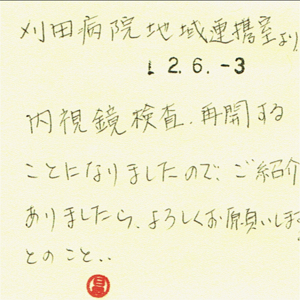 刈田病院地域連携室より
2.6.-3
内視鏡検査、再開する
ことになりましたので、ご紹介
ありましたら、よろしくお願いしま
とのこと..